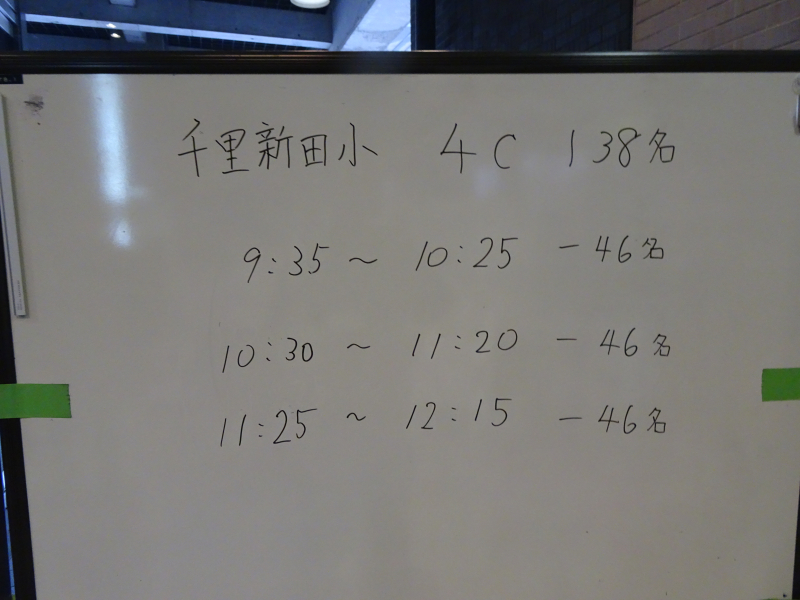 千里新田小 4C 138名
9:35 ～ 10:25 － 46名
10:30 ～ 11:20 － 46名
11:25 ～ 12:15 － 46名